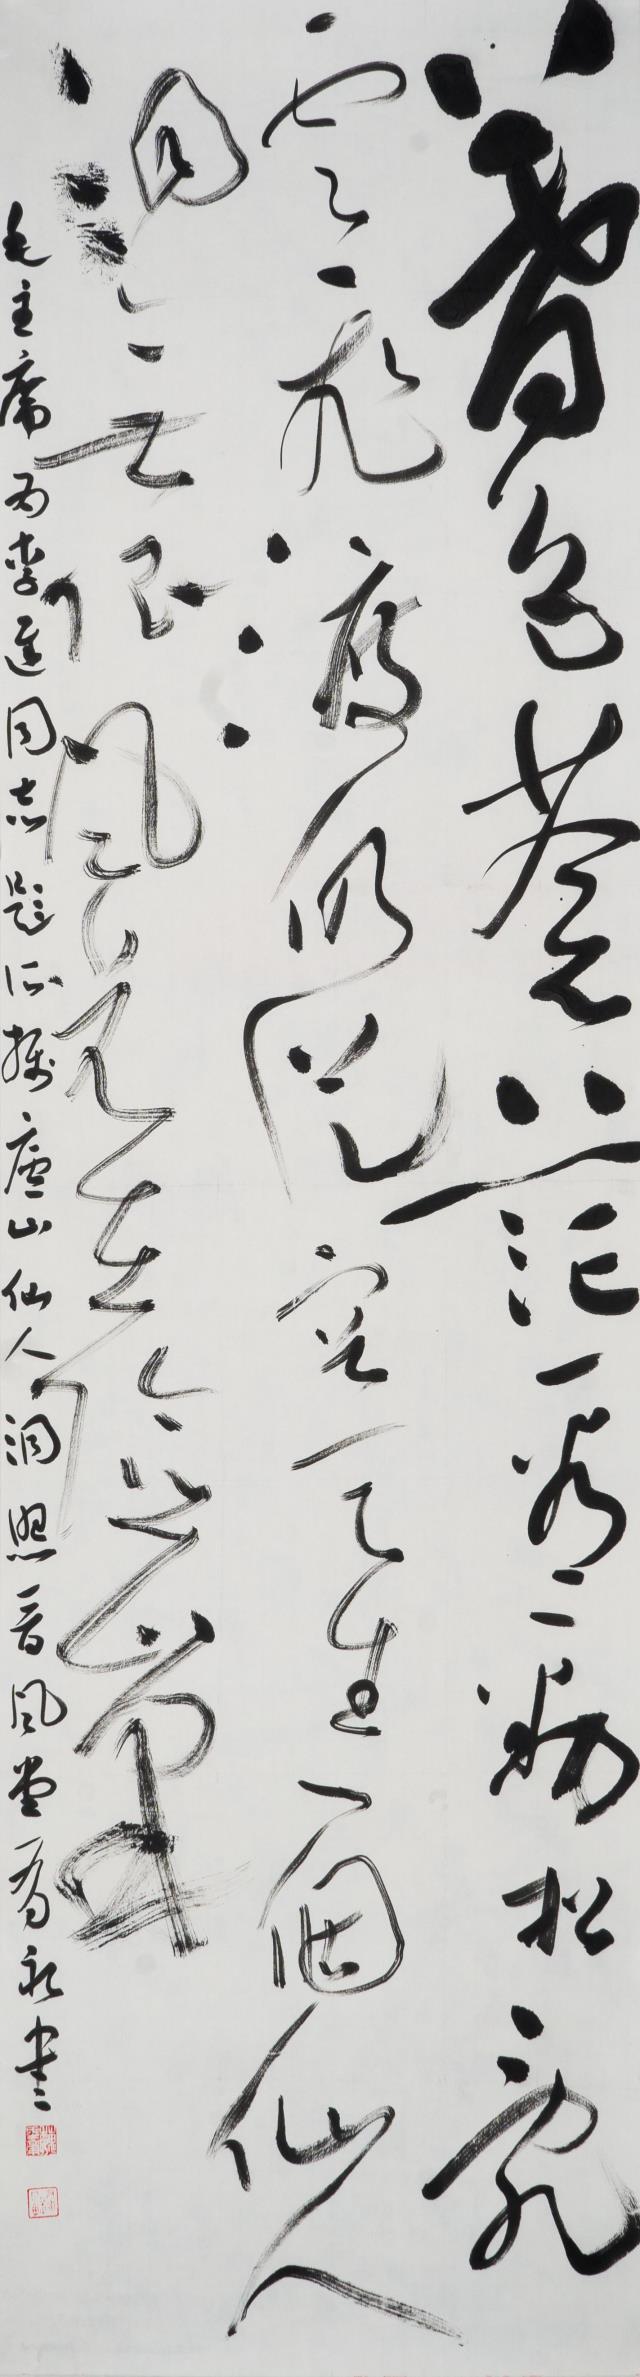 暮色苍茫看劲松乱
云飞渡仍从容天生一个仙人
洞无限风光在险峰
毛主席为李进同志题所摄庐山仙人洞照 音风堂 永书